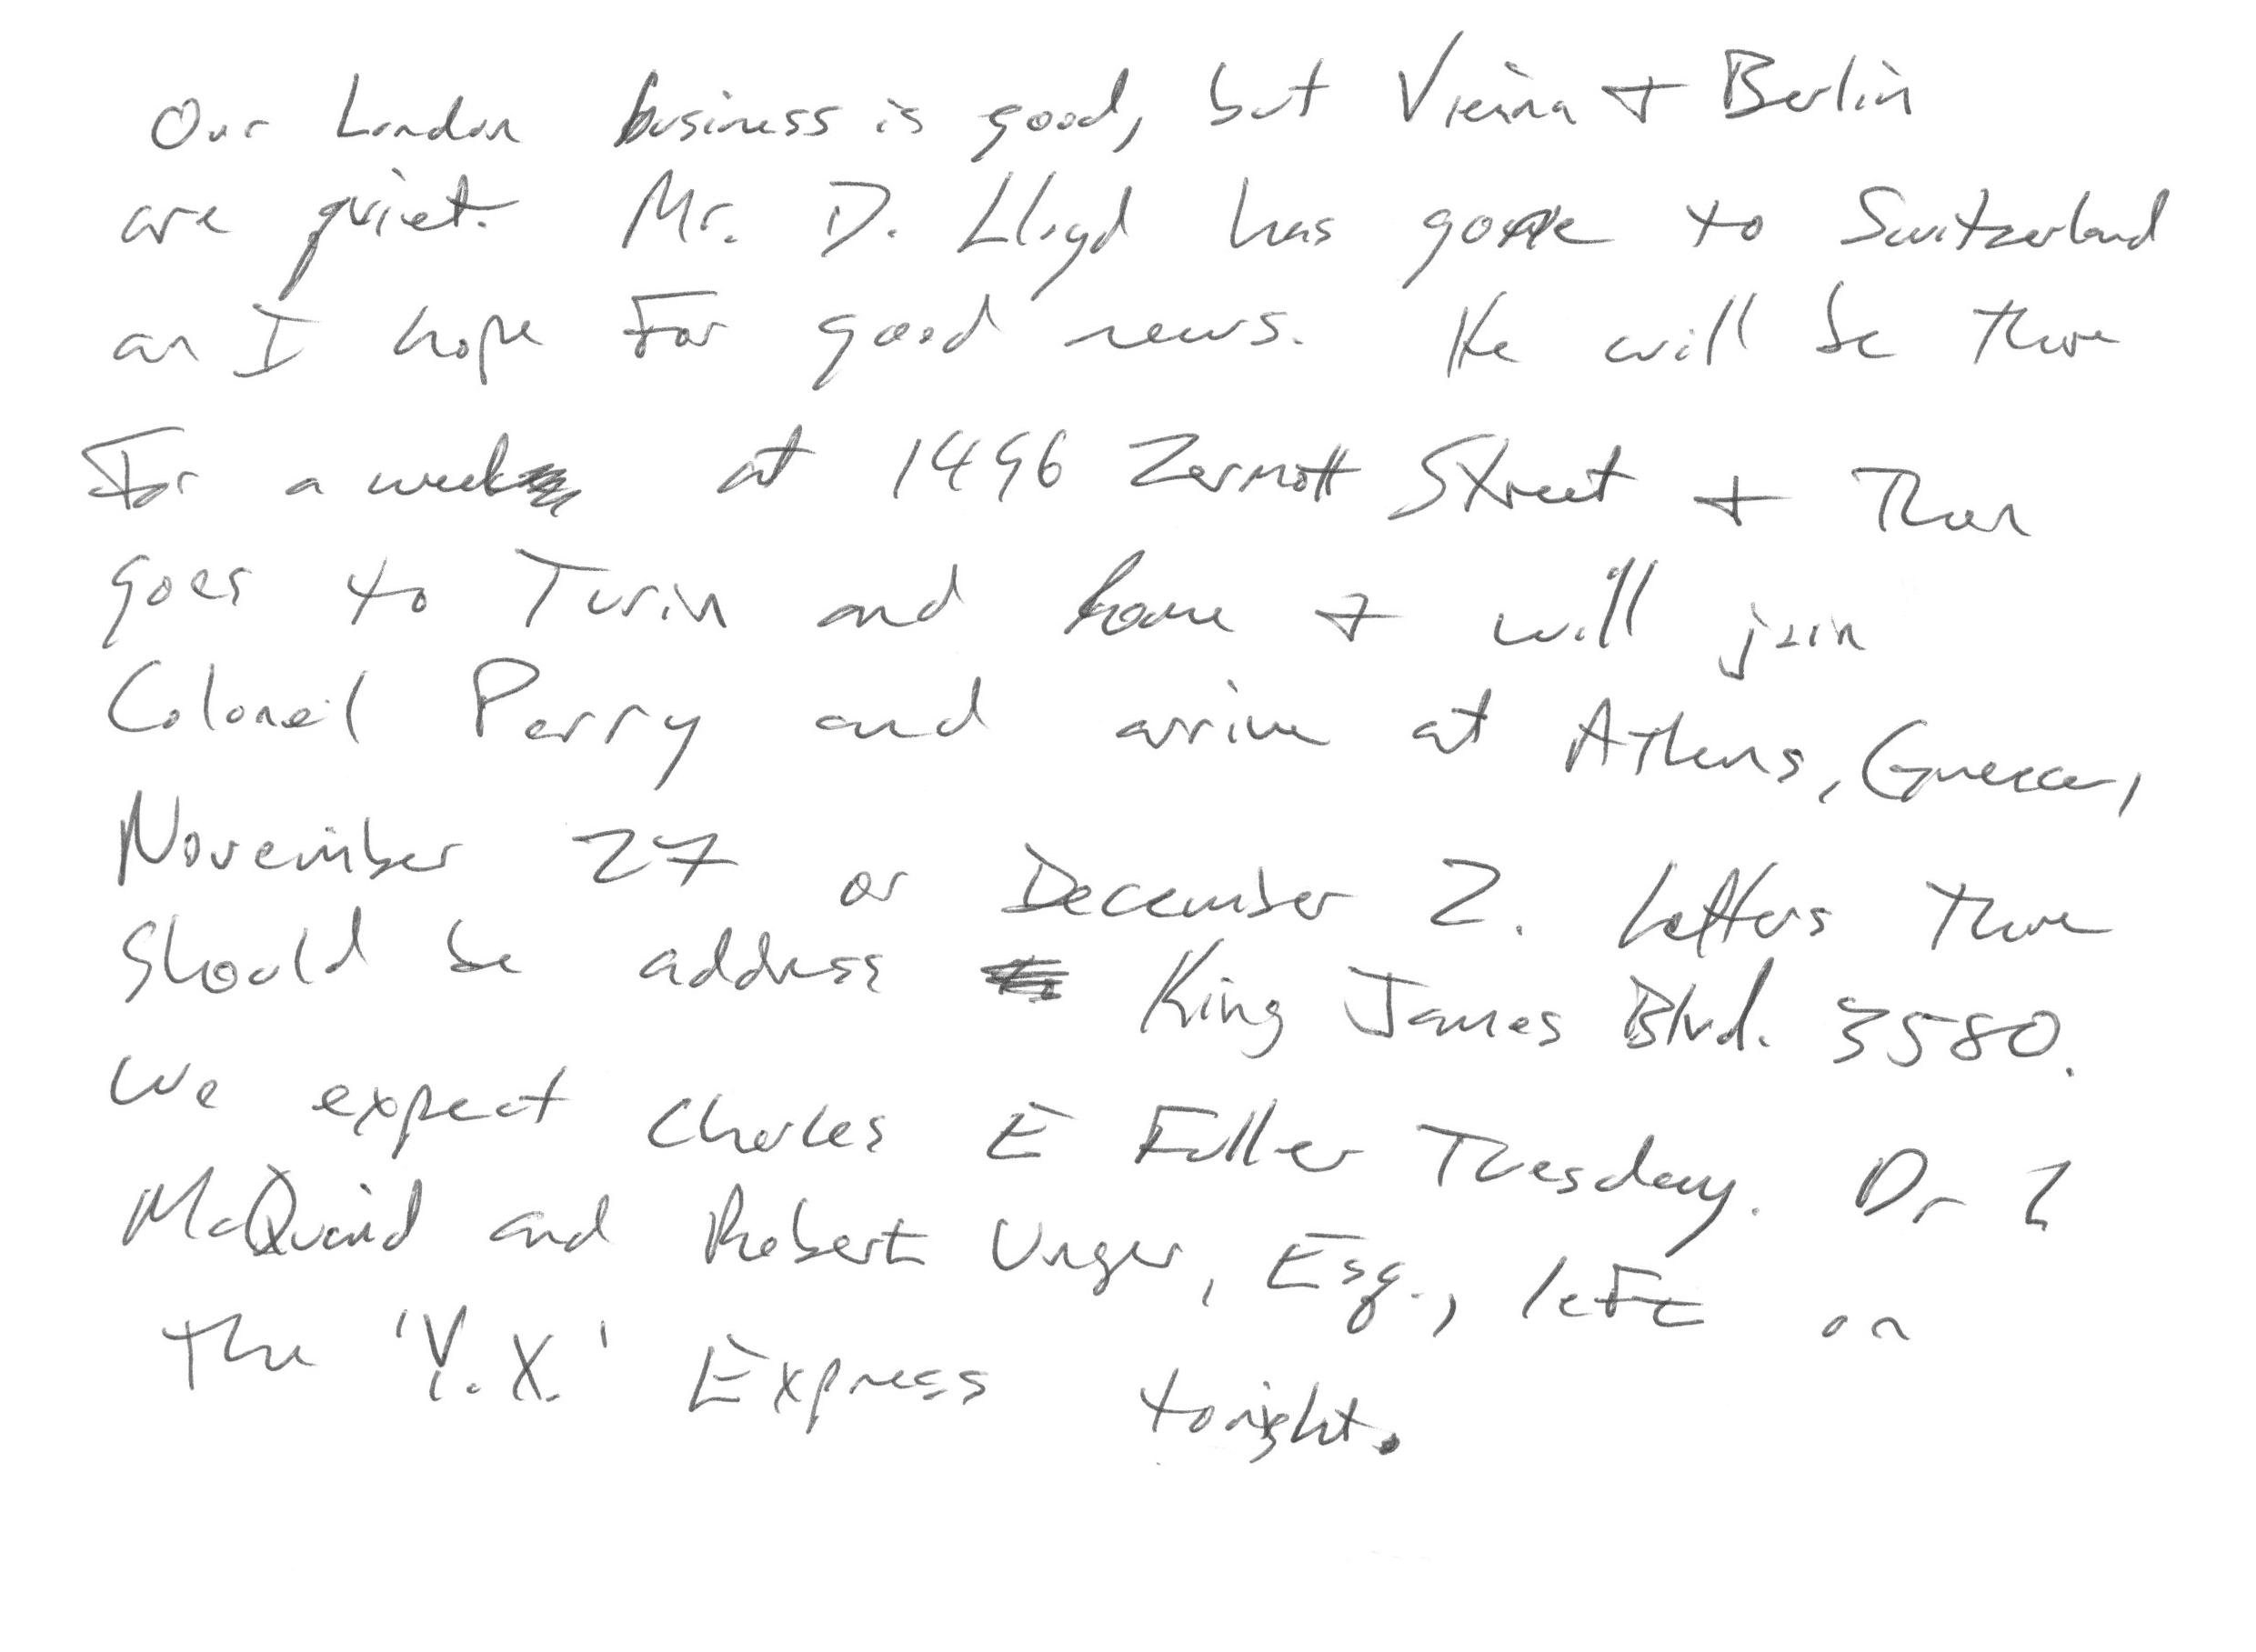 Our London business is good, but Vienna + Berlin
are quiet. Mr. D. Lloyd has gone to Switzerland
an I hope for good news. He will be there
for a week at 1496 Zermott Street + then
goes to Turin and home + will join
Colonel Perry and arrive at Athens, Greece,
November 27 or December 2. Letters there
should be address King James Blvd. 3580.
We expect Charles E Fuller Tuesday. Dr L
McQuaid and Robert Unger, Esq., left on
the 'Y.X.' Express tonight.